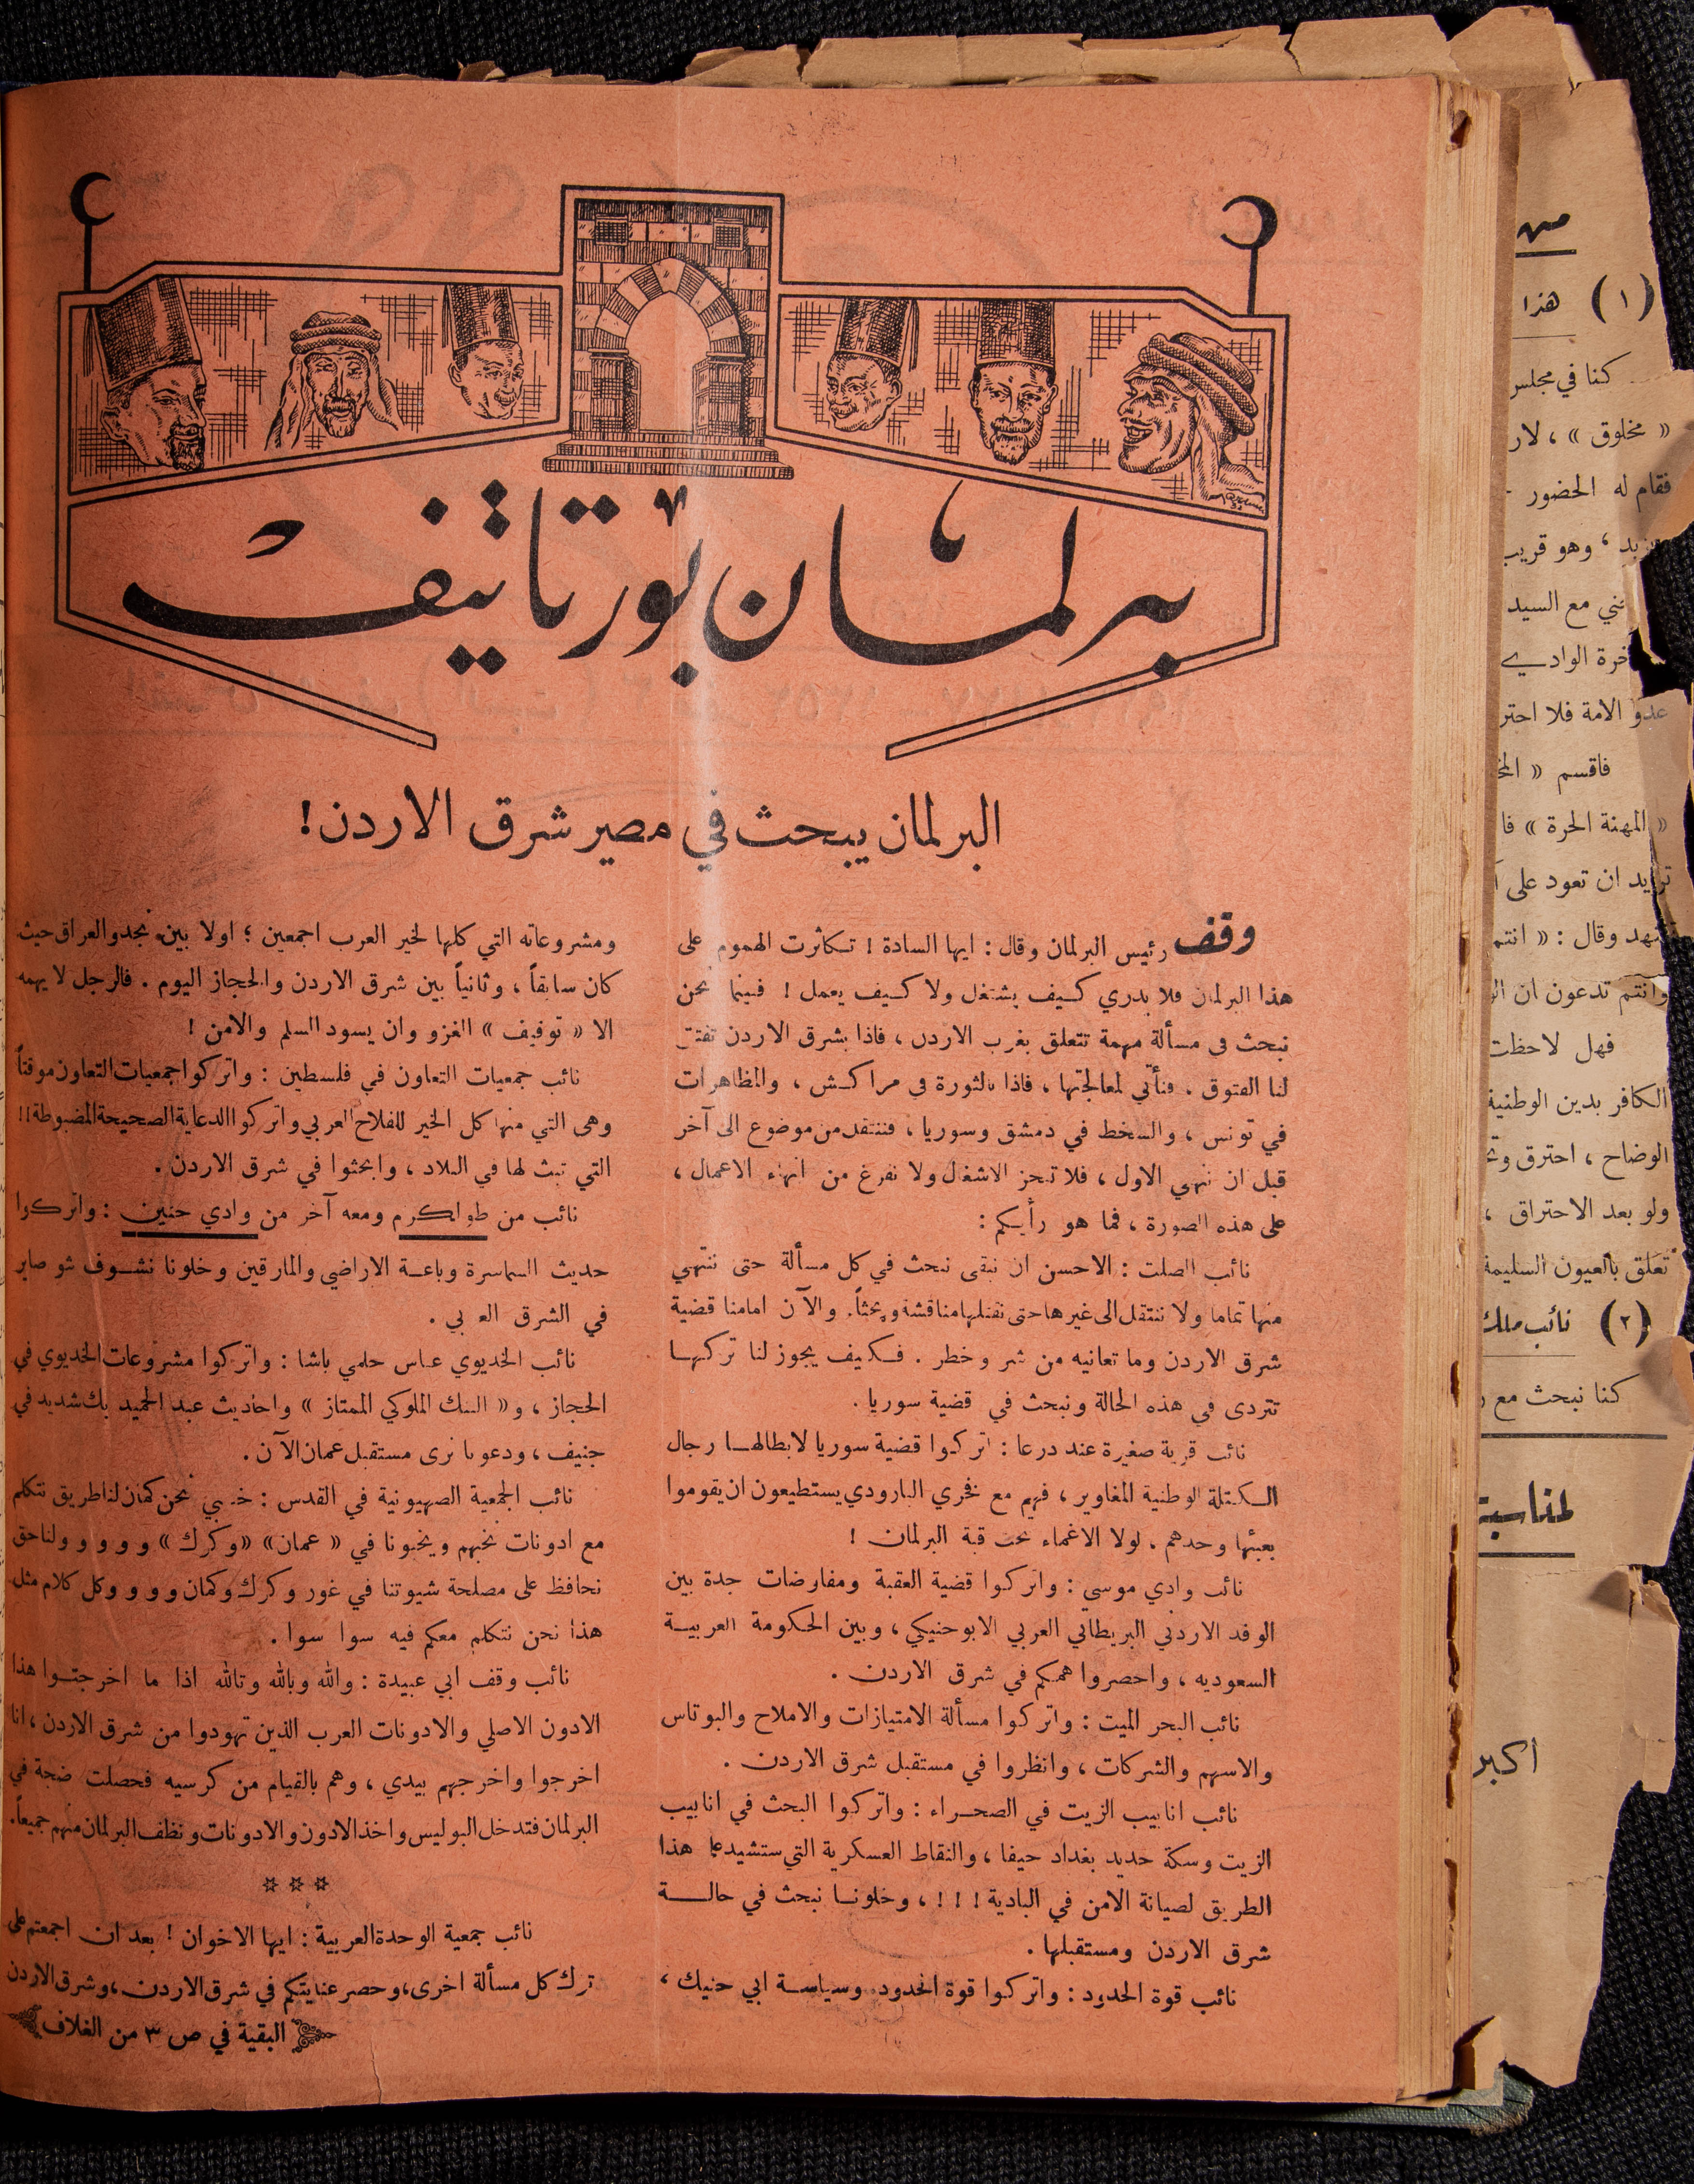 برلمان بورتاتيف
البرلمان يبحث في مصير شرق الاردن !
وقف رئيس البرلمان وقال : ايها السادة ! تكاثرت الهموم على
هذا البرلمان فلا يدري كيف يشتغل ولا كيف يعمل ! فبينما نحن
نبحث في مسألة مهمة تتعلق بغرب الاردن ، فاذا بشرق الاردن تفتق
لنا الفتوق . فنأتي لمعالجتها ، فاذا بالثورة في مراكش ، والمظاهرات
في تونس ، والسخط في دمشق وسوريا ، فننتقد من موضوع الى آخر
قبل ان ننهي الاول ، فلا تنجز الاشغال ولا نفرغ من انهاء الاعمال ،
على هذه الصورة ، فما هو رأيكم :
نائب الصلت : الاحسن ان نبقى نبحث في كل مسألة حتى ننتهي
منها تماما ولا ننتقل الى غيرها حتى نقتلها مناقشة وبحثاً . والآن امامنا قضية
شرق الاردن وما تعانيه من شر وخطر . فكيف يجوز لنا تركها
تتردى في هذه الحالة ونبحث في قضية سوريا .
نائب قرية صغيرة عند درعا : اتركوا قضية سوريا لابطالها رجال
الكتلة الوطنية المغاوير ، فهم مع فخري البارودي يستطيعون ان يقوموا
بعبئها وحدهم ، لولا الاغماء تحت قبة البرلمان !
نائب وادي موسى : واتركوا قضية العقبة ومفاوضات جدة بين
الوفد الاردني البريطاني العربي الابوحنيكي ، وبين الحكومة العربية
السعوديه ، واحصروا همكم في شرق الاردن .
نائب البحر الميت : واتركوا مسألة الامتيازات والاملاح والبوتاس
والاسهم والشركات ، وانظروا في مستقبل شرق الاردن .
نائب انابيب الزيت في الصحراء : واتركوا البحث في انابيب
الزيت وسكة حديد بغداد حيفا ، والنقاط العسكرية التي ستشيدعا هذا
الطريق لصيانة الامن في البادية ! ! ! ، وخلونا نبحث في حالة
شرق الاردن ومستقبلها .
نائب قوة الحدود : واتركوا قوة الحدود وسياسة ابي حنيك ،
ومشروعاته التي كلها لخير العرب اجمعين ؛ اولا بين نجد والعراق حيث
كان سابقاً ، وثانياً بين شرق الاردن والحجاز اليوم . فالرجل لا يهمه
الا « توفيف » الغزو وان يسود السلم والامن !
نائب جمعيات التعاون في فلسطين : واتركوا جمعيات التعاون موقتاً
وهي التي منها كل الخير للفلاح العربي واتركوا الدعاية الصحيحة المضبوطة !!
التي تبث لها في البلاد ، وابحثوا في شرق الاردن .
نائب من طولكرم ومعه آخر من وادي حنين : واتركوا
حديث السماسرة وباعة الاراضي والمارقين وخلونا نشوف شو صاير
في الشرق العربي .
نائب الخديوي عباس حلمي باشا : واتركوا مشروعات الخديوي في
الحجاز ، و « البنك الملوكي الممتاز » واحاديث عبد الحميد بك شديد في
جنيف ، ودعونا نرى مستقبل عمان الآن .
نائب الجمعية الصهيونية في القدس : خبيبي نحن كمان لنا طريق نتكلم
مع ادونات نحبهم ويحبونا في « عمان » « وكرك » و و و و ولنا حق
نحافظ على مصلحة شيوتنا في غور وكرك وكمان و و و وكل كلام مثل
هذا نحن نتكلم معكم فيه سوا سوا .
نائب وقف ابي عبيدة : والله وبالله وتالله اذا ما اخرجتوا هذا
الادون الاصلي والادونات العرب الذين تهودوا من شرق الاردن ، انا
اخرجوا واخرجهم بيدي ، وهم بالقيام من كرسيه فحصلت ضجة في
البرلمان فتدخل البوليس واخذ الادون والادونات ونظف البرلمان منهم جميعاً .
نائب جمعية الوحدة العربية : ايها الاخوان ! بعد ان اجمعتم على
ترك كل مسألة اخرى ، وحصر عنايتكم في شرق الاردن ، وشرق الاردن
البقية في ص ٣ من الغلاف
من
( ١ ) هذا
كنا في مجلس
« مخلوق » ، لار
فقام له الحضور
، وهو قريب
مع السيد
الوادي
عدو الامة فلا احتر
فاقسم « المخ
« المهنة الحرة » فا
تريد ان تعود على
وقال : « انتم
وانتم تدعون ان
فهل لاحظت
الكافر بدين الوطنية
الوضاح ، احترق
ولو بعد الاحتراق ،
تعلق بالعيون السليمة
( ٢ ) نائب ملك
كنا نبحث مع
لمناسبة
اكبر